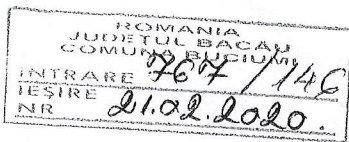 ROMANIA
JUDEȚUL BACĂU
COMUNA BUCIUMI
INTRARE 767/146
IEȘIRE
NR 21.02.2020.